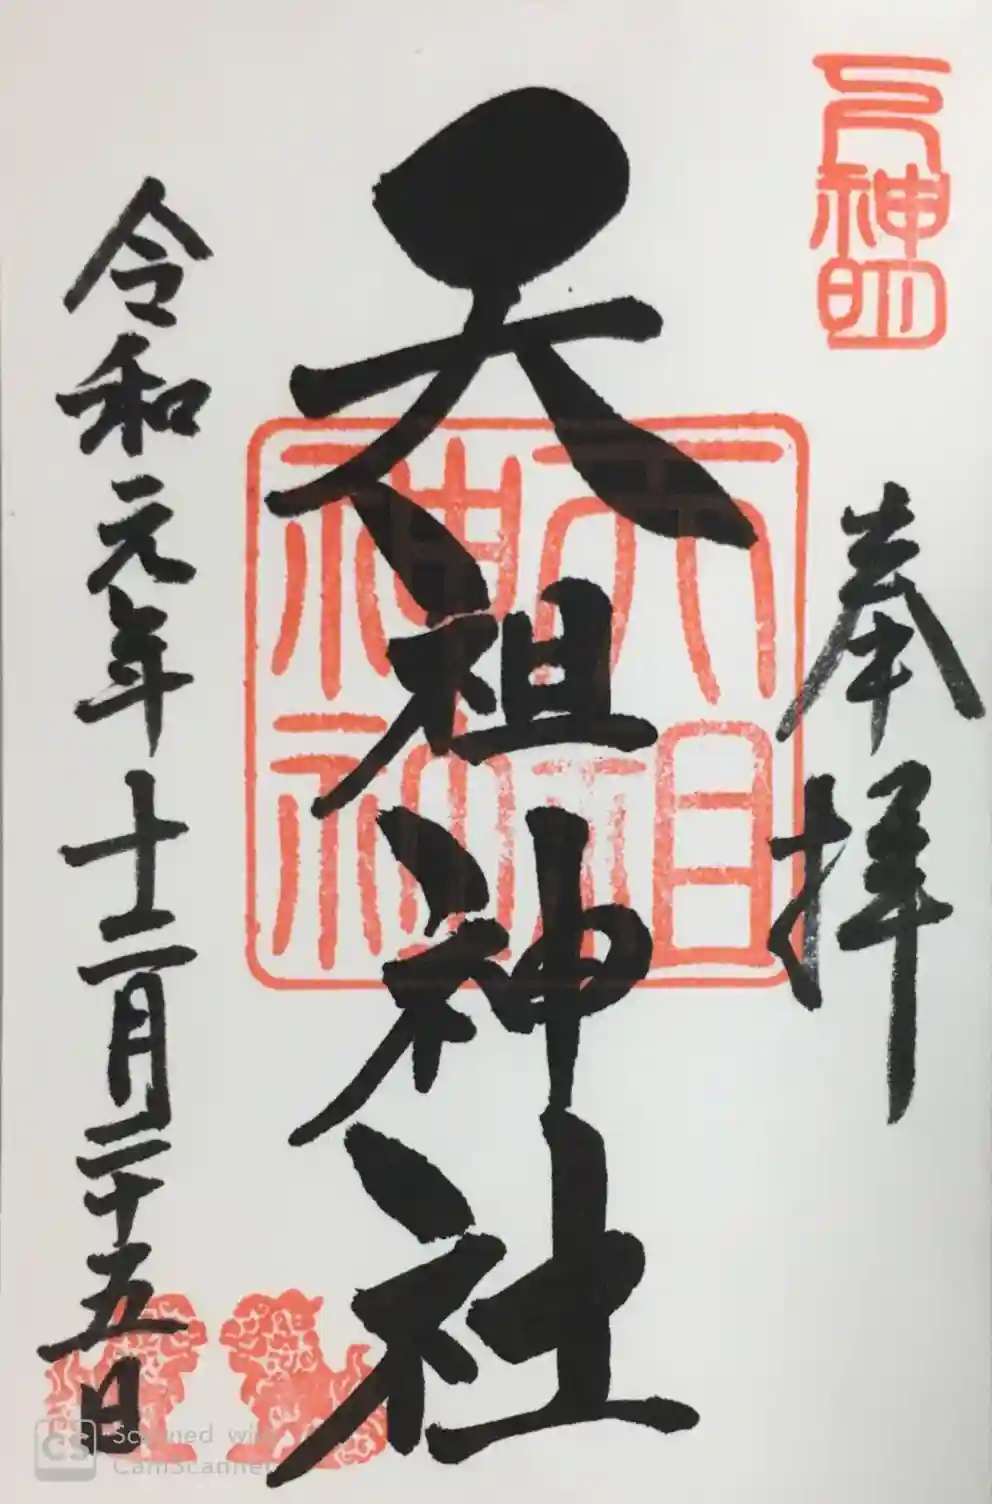 元神明
奉拝
天祖神社
天祖
神社
令和元年十二月二十五日
CS
Scanned with
CamScanner